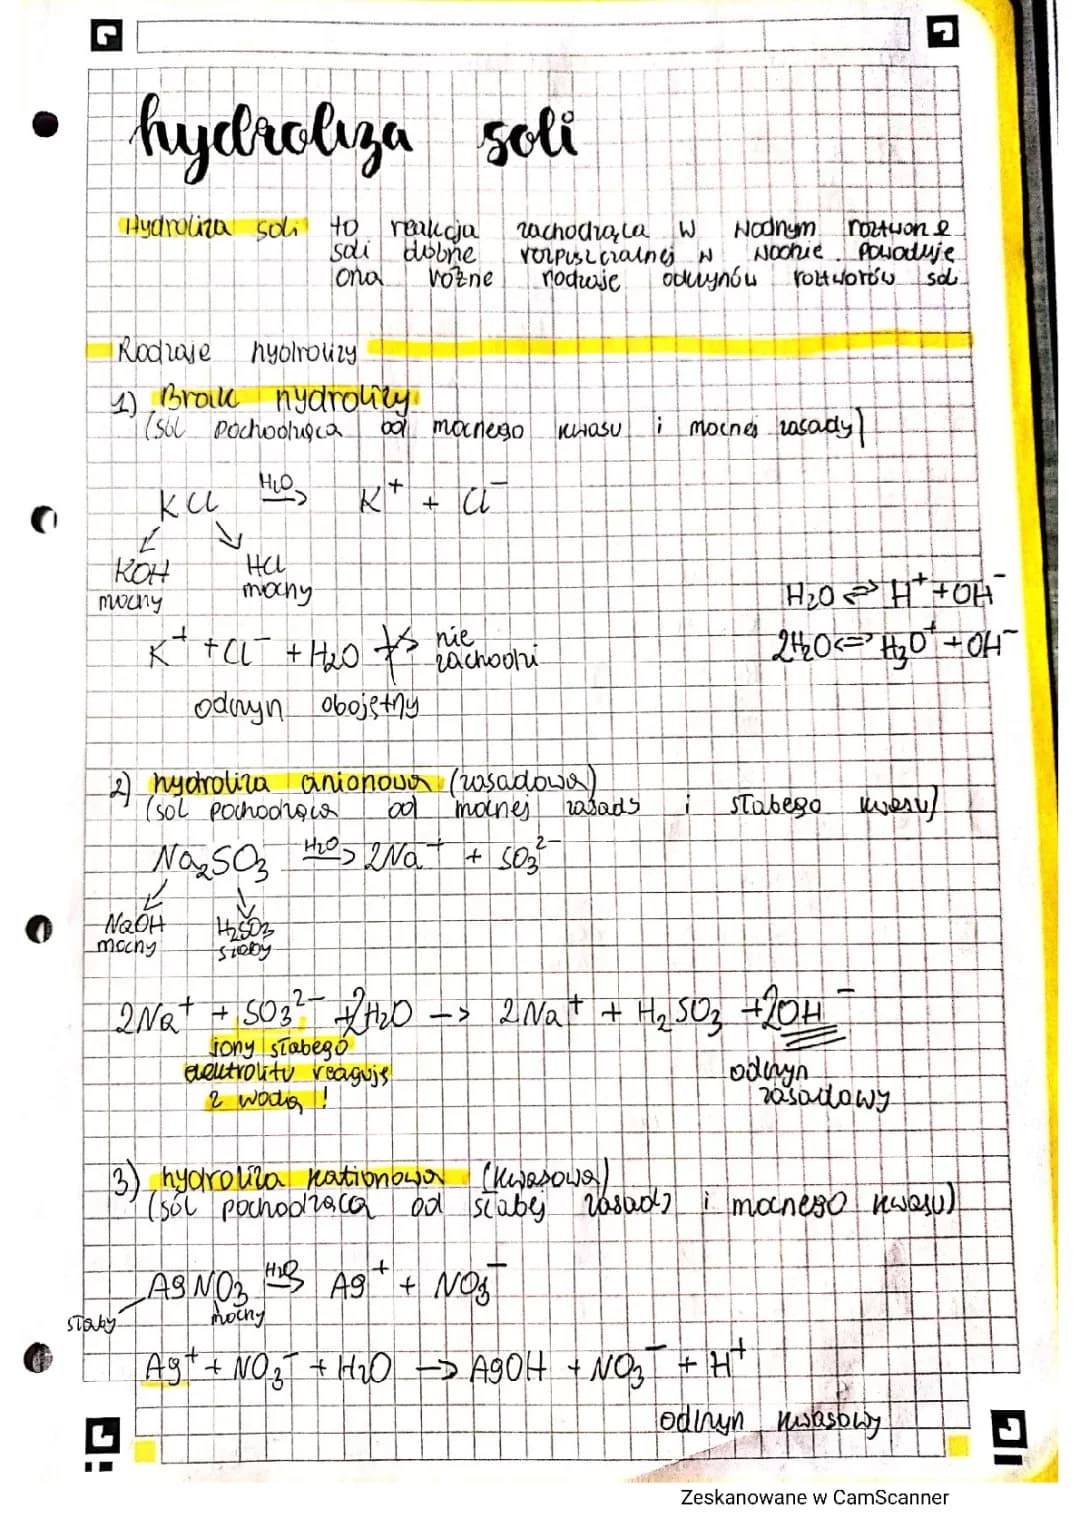 hydroliza soli
Hydroliza soli to reakcja zachodząca w wodnym roztworze
soli dobrze rozpuszczalnej w wodzie. Powoduje
ona różne rodzaje odczynów roztworów sol
Rodzaje hydrolizy
1) Brak hydrolizy
(sól pochodząca od mocnego kwasu i mocnej zasady)
KCl H₂O→ K⁺ + Cl⁻
KOH HCl
mocny mocny
H₂O ⇌ H⁺ + OH⁻
K⁺ + Cl⁻ + H₂O ↛ nie zachodzi
2H₂O <=> H₃O⁺ + OH⁻
odczyn obojętny
2) hydroliza anionowa (zasadowa)
(sól pochodząca od mocnej zasady i słabego kwasu)
Na₂SO₃ H₂O→ 2Na⁺ + SO₃²⁻
NaOH H₂SO₃
mocny słaby
2Na⁺ + SO₃²⁻ + 2H₂O → 2Na⁺ + H₂SO₃ + 2OH⁻
jony słabego
elektrolitu reagują
z wodą!
odczyn
zasadowy
3) hydroliza kationowa (kwasowa)
(sól pochodząca od słabej zasady i mocnego kwasu)
AgNO₃ H₂O→ Ag⁺ + NO₃⁻
słaby mocny
Ag⁺ + NO₃⁻ + H₂O → AgOH + NO₃⁻ + H⁺
odczyn kwasowy
Zeskanowane w CamScanner